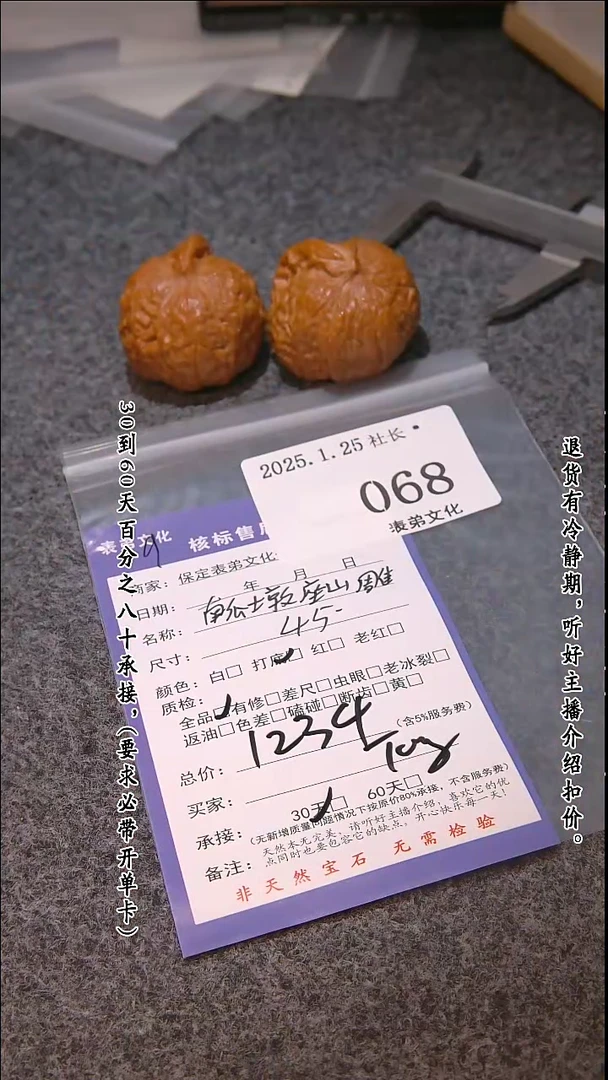 2025.1.25 社长
068
表弟文化
表弟文化 核标售后
商家：保定表弟文化
日期： 年 月 日
名称：
尺寸：45-
颜色：白□ 打底□ 红□ 老红□
质检：全品□有修□差尺□虫眼□老冰裂□
返油□色差□磕碰□断齿□黄□
总价：1234 （含5%服务费）
买家：
承接：30天□ 60天□
（无新增质量问题情况下按原价80%承接，不含服务费）
备注：天然本无完美，请听好主播介绍，喜欢它的优
点同时也要包容它的缺点。开心快乐每一天！
非天然宝石 无需检验
30到60天百分之八十承接，（要求必带开单卡）
退货有冷静期，听好主播介绍扣价。